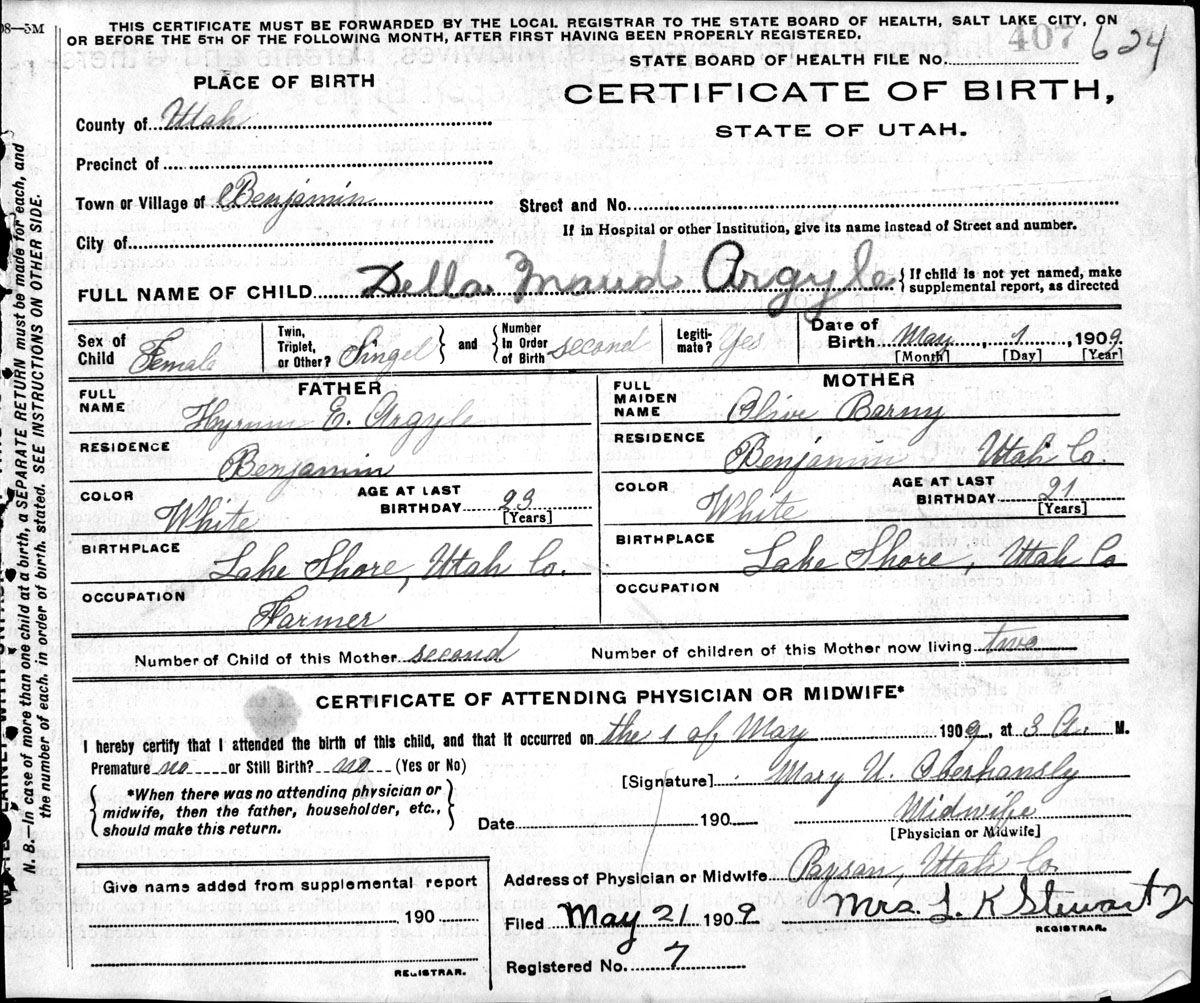 08—5M
THIS CERTIFICATE MUST BE FORWARDED BY THE LOCAL REGISTRAR TO THE STATE BOARD OF HEALTH, SALT LAKE CITY, ON
OR BEFORE THE 5TH OF THE FOLLOWING MONTH, AFTER FIRST HAVING BEEN PROPERLY REGISTERED.
407 624
STATE BOARD OF HEALTH FILE No.
PLACE OF BIRTH
CERTIFICATE OF BIRTH,
STATE OF UTAH.
County of Utah
Precinct of
Town or Village of Benjamin
Street and No.
If in Hospital or other Institution, give its name instead of Street and number.
City of
FULL NAME OF CHILD Della Maud Argyle {If child is not yet named, make
supplemental report, as directed
Sex of Child Female
Twin, Triplet, or Other? Singel } and { Number In Order of Birth second
Legitimate? Yes
Date of Birth May, 1, 1909.
[Month] [Day] [Year]
FATHER
FULL NAME Hyrum E. Argyle
RESIDENCE Benjamin
COLOR White AGE AT LAST BIRTHDAY 23 [Years]
BIRTHPLACE Lake Shore, Utah Co.
OCCUPATION Farmer
MOTHER
FULL MAIDEN NAME Olive Barny
RESIDENCE Benjamin Utah Co.
COLOR White AGE AT LAST BIRTHDAY 21 [Years]
BIRTHPLACE Lake Shore, Utah Co
OCCUPATION
Number of Child of this Mother second Number of children of this Mother now living two
CERTIFICATE OF ATTENDING PHYSICIAN OR MIDWIFE*
I hereby certify that I attended the birth of this child, and that it occurred on the 1 of May 1909, at 3 A. M.
Premature no or Still Birth? no (Yes or No)
[Signature] Mary U. Oberhansly
{ *When there was no attending physician or
midwife, then the father, householder, etc.,
should make this return. }
Date 190
Midwife
[Physician or Midwife]
Give name added from supplemental report
190
REGISTRAR.
Address of Physician or Midwife Payson, Utah Co.
Filed May 21 1909 Mrs. L. K Stewart Jr
REGISTRAR.
Registered No. 7
N. B.—In case of more than one child at a birth, a SEPARATE RETURN must be made for each, and
the number of each, in order of birth, stated. SEE INSTRUCTIONS ON OTHER SIDE.